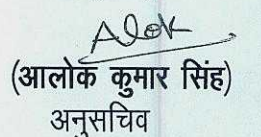 Alok
(आलोक कुमार सिंह)
अनुसचिव